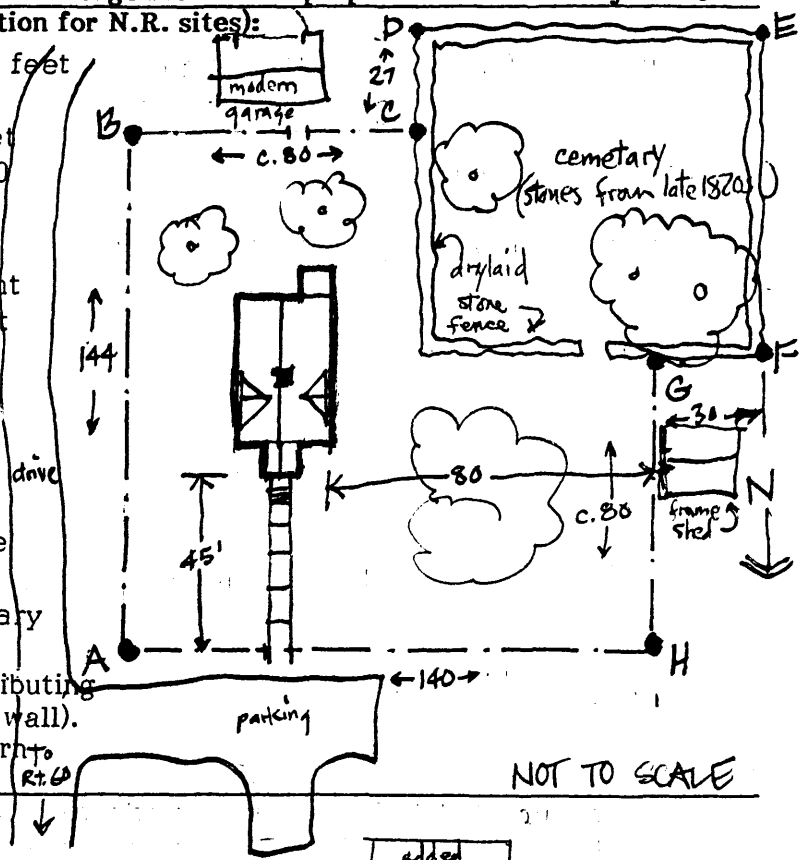 tion for N.R. sites):
feet
D
E
27
C
modern
garage
B
c.80
cemetary
(stones from late 1820s)
drylaid
stone
fence
144
F
G
30
drive
80
c.80
frame
shed
N
45'
A
H
ary
ibuting
wall).
140
parking
To
Rt. 60
NOT TO SCALE